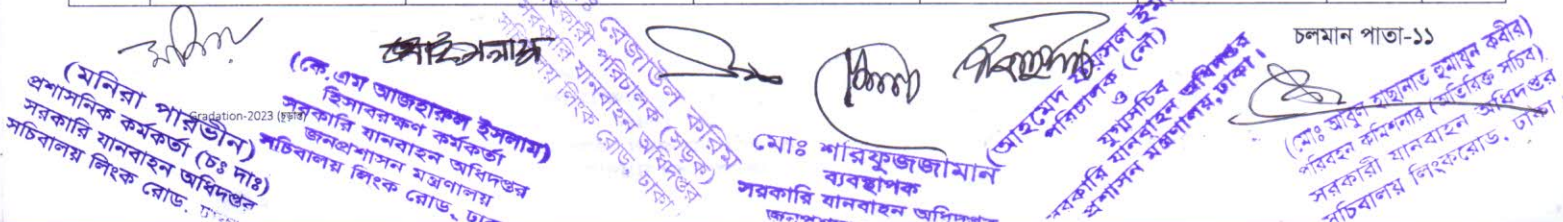 চলমান পাতা-১১
(মনিরা পারভীন)
প্রশাসনিক কর্মকর্তা (চঃ দাঃ)
সরকারি যানবাহন অধিদপ্তর
সচিবালয় লিংক রোড, ঢাকা
Gradation-2023 (চূড়ান্ত)
(কে, এম আজহারুল ইসলাম)
হিসাবরক্ষণ কর্মকর্তা
সরকারি যানবাহন অধিদপ্তর
জনপ্রশাসন মন্ত্রণালয়
সচিবালয় লিংক রোড, ঢাকা
রেজাউল করিম
পরিচালক (সড়ক)
সরকারি যানবাহন অধিদপ্তর
লিংক রোড, ঢাকা
মোঃ শরিফুজজামান
ব্যবস্থাপক
সরকারি যানবাহন অধিদপ্তর
(আহমেদ ফয়সল
পরিচালক (নৌ)
ও
যুগ্মসচিব
সরকারি যানবাহন অধিদপ্তর
মন্ত্রণালয়, ঢাকা।
(মোঃ আবুল হাছানাত হুমায়ুন কবীর)
পরিবহন কমিশনার (অতিরিক্ত সচিব)
সরকারী যানবাহন অধিদপ্তর
সচিবালয় লিংকরোড, ঢাকা